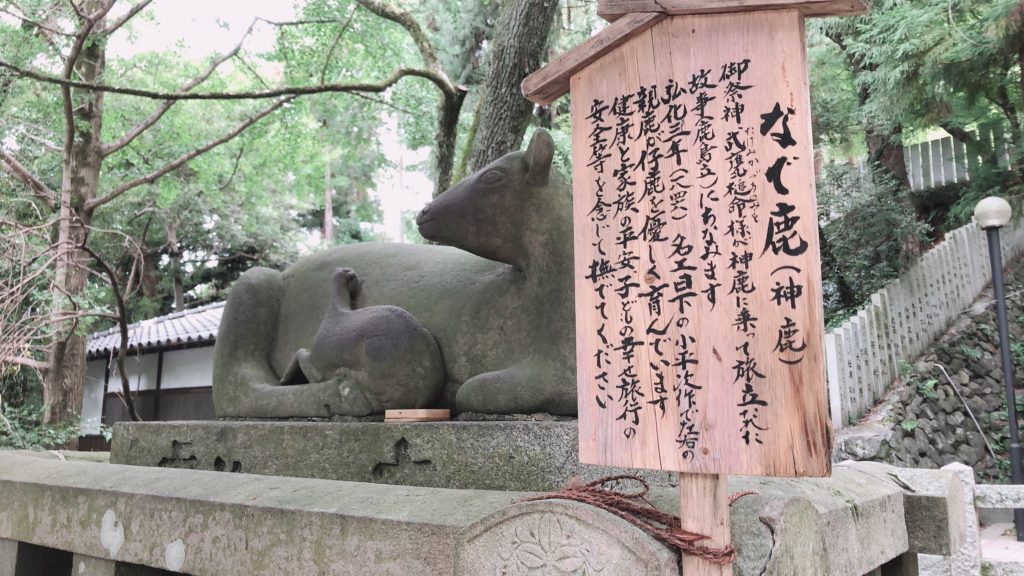 なで鹿(神鹿)
御祭神 武甕槌命様が神鹿に乗って旅立たれた
故事(鹿島立)にちなみます
弘化三年 名工日下の小平次作で右の
親鹿が仔鹿を優しく育んでいます
健康と家族の平安子どもの幸せ旅行の
安全等を念じて撫でてください